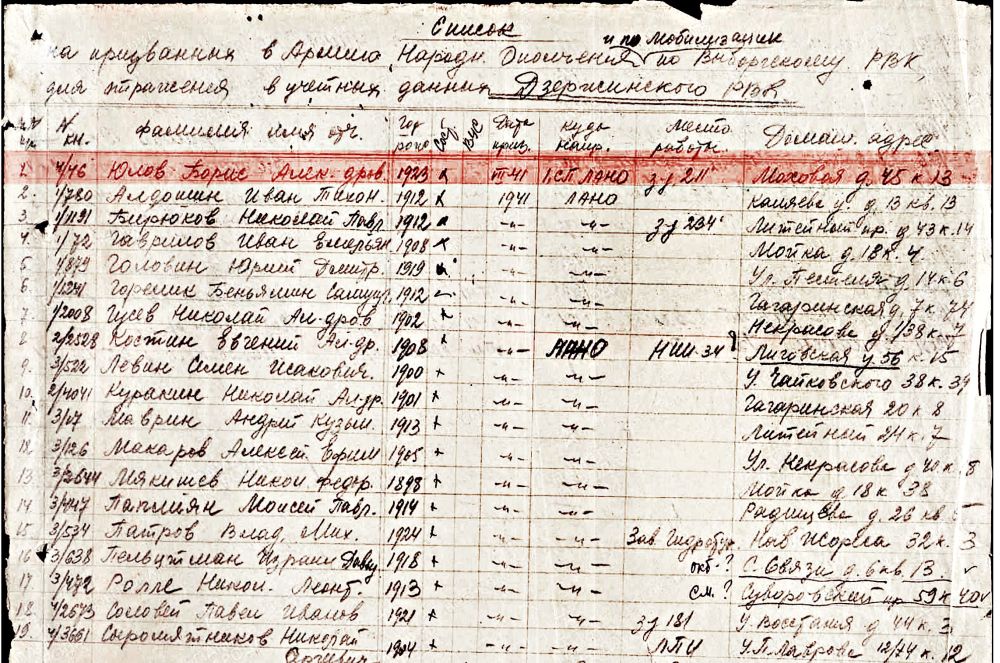 Список
и по мобилизации
на призванных в Армию Народн. Ополчения по Выборгскому РВК,
для отражения в учетных данных Дзержинского РВК
№ кн. фамилия имя отч. Год рожд Сост. ВУС Дата призв. куда напр. Место работы Домаш. адрес
1. 4/76 Юлов Борис Алек-дров. 1923 VII-41 1 СП ЛАНО з-д 211 Моховая д. 45 к 13
2. 1/780 Алдошин Иван Тихон. 1912 1941 ЛАНО Каляева у. д 13 кв. 13
3. 1/1191 Бирюков Николай Павл. 1912 -"- -"- з-д 234 Литейный пр. д 43 к. 14
4. 1/72 Гаврилов Иван Емельян 1908 -"- -"- Мойка д. 18 к. 4
5 1/873 Головин Юрий Дмитр. 1919 -"- -"- Ул. Пестеля д. 14 к 6
6. Горелик Беньямин 1912 -"- -"- Гагаринская д. 7 к 74
7. 1/2008 Гусев Николай Ал-дров 1902 -"- -"- Некрасова д 1/38 к. 7
8 2/2528 Костин Евгений Ал-др. 1908 -"- НАНО НИИ-34 Лиговская у 56 к 15
9. 3/522 Левин Семен Исакович. 1900 + -"- -"- У. Чайковского 38 к. 39
10. 2/4041 Куракин Николай Ал-др. 1901 + -"- -"- Гагаринская 20 к 8
11. 3/07 Маврин Андрей Кузьм. 1913 + -"- -"- Литейный 24 к. 7
12. 3/126 Макаров Алексей Ефим 1905 + -"- -"- Ул. Некрасова д 40 к. 8
13 3/2544 Мякишев Никол федор. 1898 + -"- -"- Мойка д. 18 к 38
14 3/447 Моисей Павл. 1914 + -"- -"- Радищева д. 26 кв
15 3/534 Патров Влад. Мих. 1924 + -"- -"- Зав. Гидро Наб Жореса 32 к. 3
16 3/638 Пельцтман Израил Давид 1918 + -"- -"- окт. ? С. Связи д. 6 кв. 13.
17 3/472 Ролле Никол. Леонт. 1913 + -"- -"- см. ? Суворовский пр 59 к 40
18 4/2673 Соловей Павел Иванов 1921 + -"- -"- з-д 181 У. Восстания д 44 к. 3
19. 4/3661 Сыромятников Николай 1904 + -"- -"- ЛПИ У. П. Лаврова 12/74 к. 12